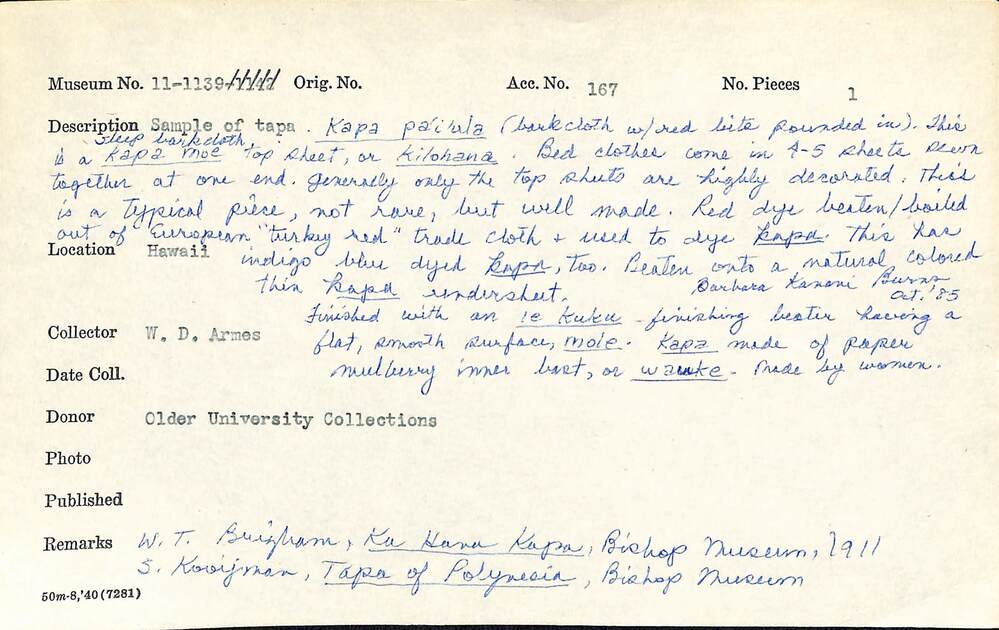 Museum No. 11-1139-1142 Orig. No. Acc. No. 167 No. Pieces 1
Description Sample of tapa. Kapa pa'i'ula (barkcloth w/red bits pounded in). This
sleep barkcloth
is a Kapa moe top sheet, or Kilohana. Bed clothes come in 4-5 sheets sewn
together at one end. Generally only the top sheets are highly decorated. This
is a typical piece, not rare, but well made. Red dye beaten/boiled
out of European "turkey red" trade cloth + used to dye kapa. This has
Location Hawaii indigo blue dyed kapa, too. Beaten onto a natural colored
thin kapa undersheet. Barbara Kanani Burns
Oct. '85
Finished with an ie Kuku finishing beater having a
Collector W. D. Armes flat, smooth surface, mole. Kapa made of paper
mulberry inner bast, or wauke. Made by women.
Date Coll.
Donor Older University Collections
Photo
Published
Remarks W. T. Brigham, Ka Hana Kapa, Bishop Museum, 1911
S. Kooijman, Tapa of Polynesia, Bishop Museum
50m-8,'40(7281)